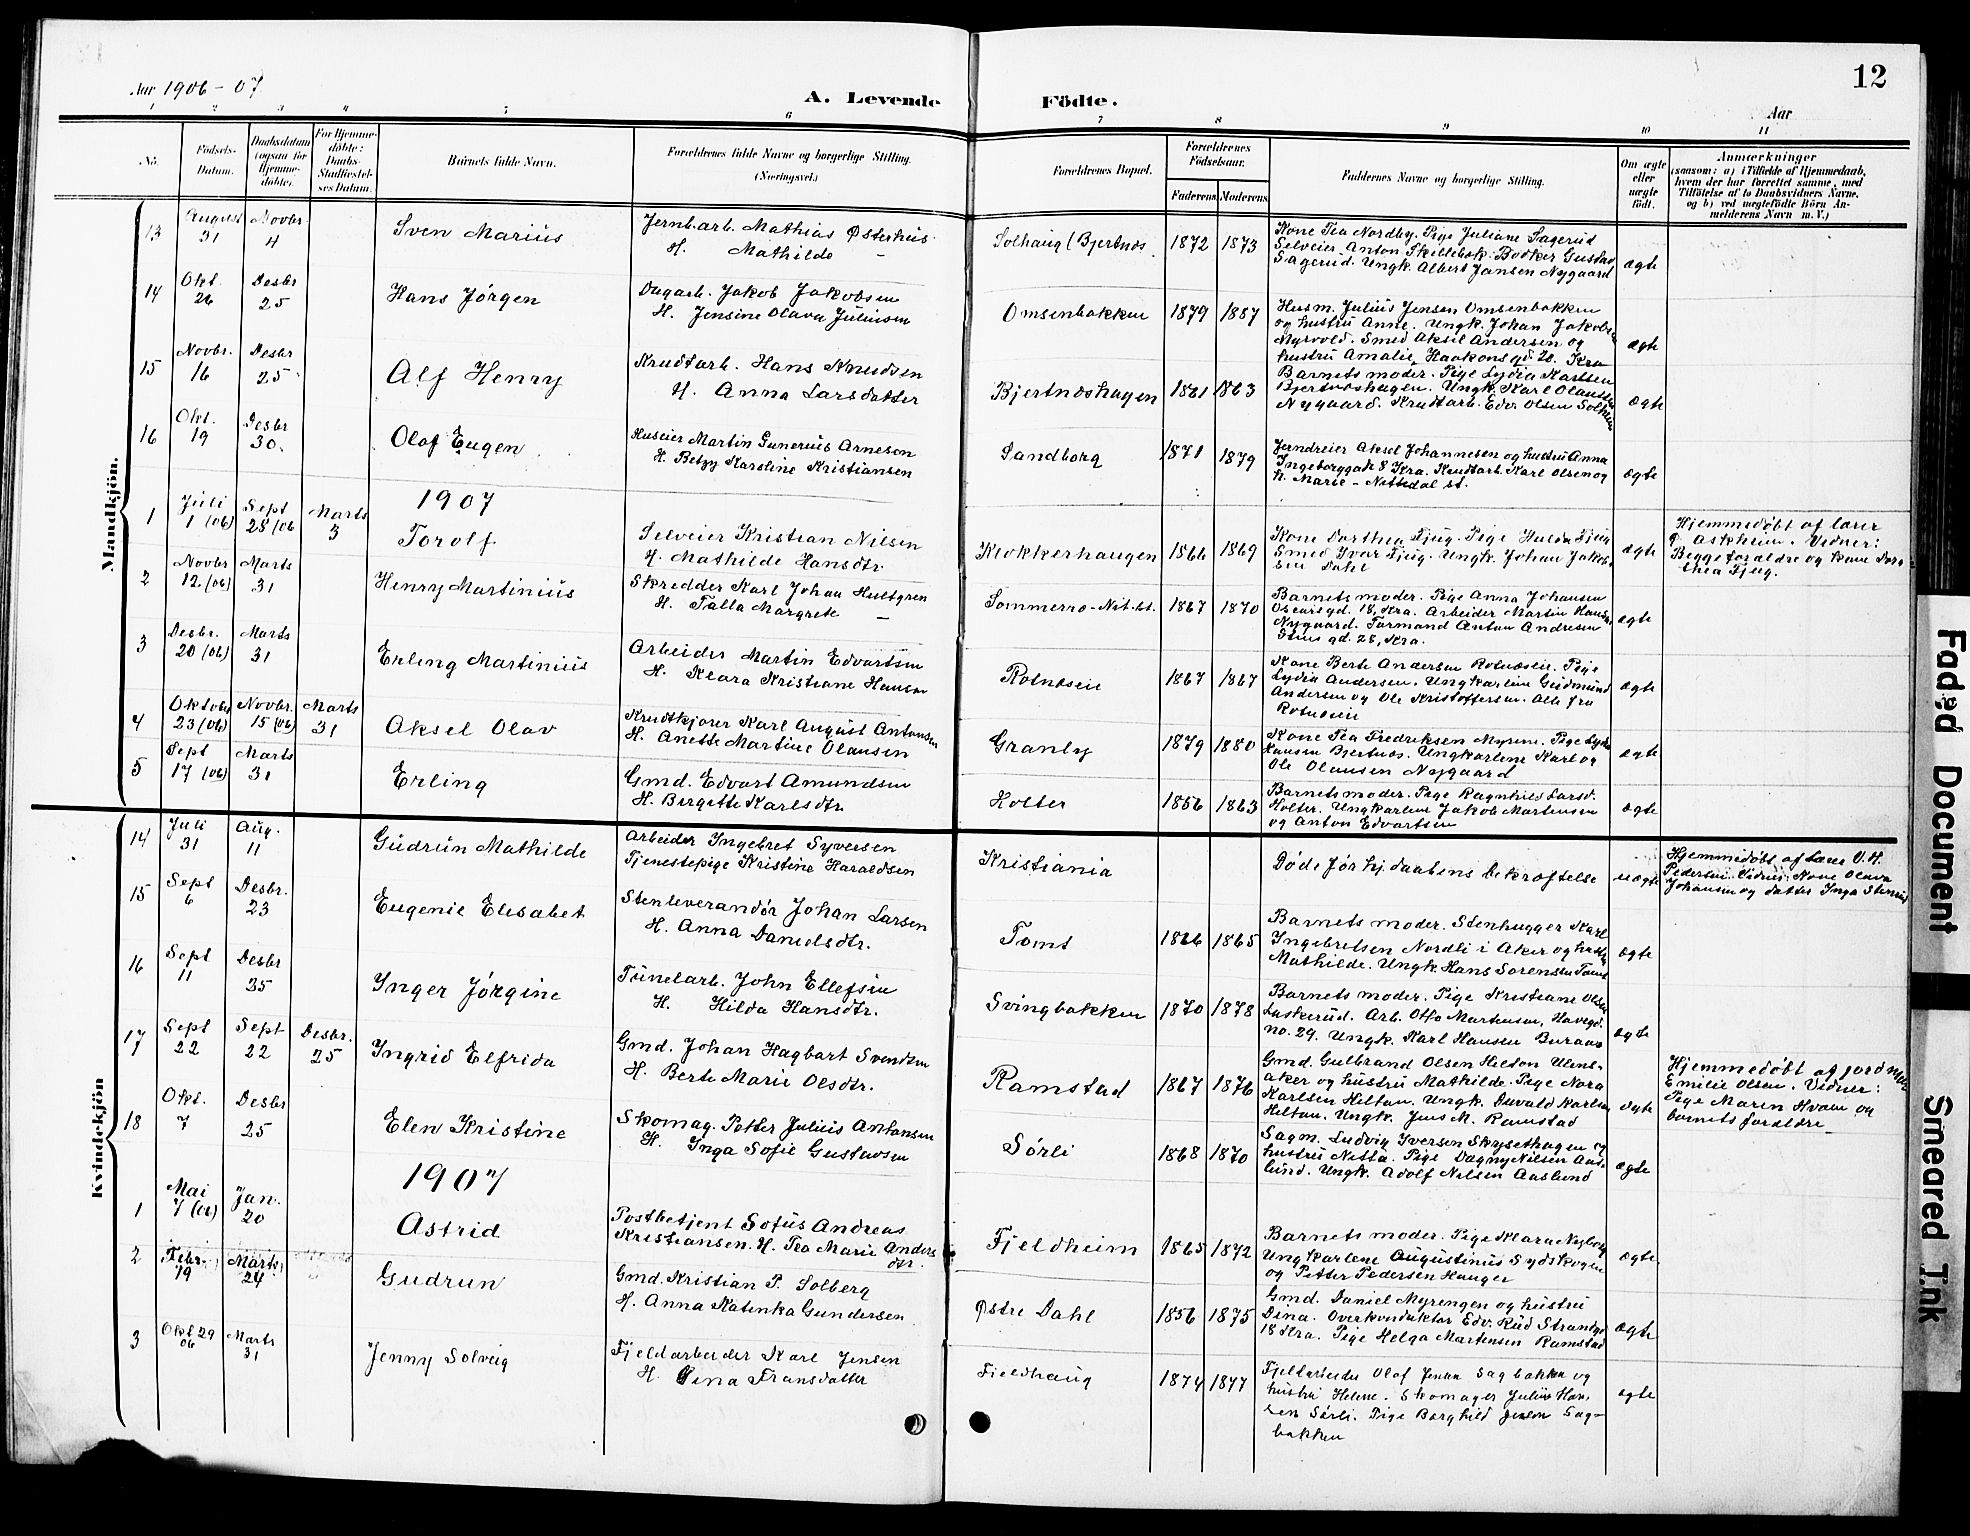 Aar 1906-07
A. Levende Födte.
Aar
12
1 2 3 4 5 6 7 8 9 10 11
No. Födsels-Datum. Daabsdatum (ogsaa for Hjemmedöbte). For Hjemmedöbte: Daabs-Stadfæstelses Datum. Barnets fulde Navn. Forældrenes fulde Navne og borgerlige Stilling. (Næringsvei.) Forældrenes Bopæl. Forældrenes Födselsaar. Faderens. Moderens. Faddernes Navne og borgerlige Stilling. Om ægte eller uægte födt. Anmærkninger (saasom: a) i Tilfælde af Hjemmedaab, hvem der har forrettet samme, med Tilföielse af to Daabsvidners Navne, og b) ved uægtefödte Börn Anmelderens Navn m. V.)
Mandkjön.
13 August 31 Novbr. 4 Sven Marius Jernb.arb. Mathias Østerhus H. Mathilde — Solhaug (Bjertnæs 1872 1873 Kone Tea Nordby. Pige Juliane Sagerud Selveier Anton Skillebæk. Bødker Gustav Sagerud. Ungk. Albert Jansen Nygaard ægte
14 Okt. 26 Desbr 25 Hans Jørgen Dagarb. Jakob Jakobsen H. Jensine Olava Juliusen Omsenbakken 1879 1887 Husm. Julius Jensen Omsenbakken og hustru Anne. Ungk. Johan Jakobsen Myrvold. Smed Aksel Andersen og hustru Amalie, Haakons gd. 20. Kra ægte
15 Novbr. 16 Desbr 25 Alf Henry Krudtarb. Hans Knudsen H. Anna Larsdatter Bjertnæshagen 1861 1863 Barnets moder. Pige Lydia Karlsen Bjertnæshagen. Ungk. Karl Olaussen Nygaard. Krudtarb. Edv. Olsen Solheim ægte
16 Okt. 19 Desbr 30. Olaf Eugen Huseier Martin Gunerius Arnesen H. Betzy Karoline Kristiansen Sandborg 1871 1879 Jerndreier Aksel Johannesen og hustru Anna Ingeborggade 8 Kra. Krudtarb. Karl Olsen og h. Marie - Nittedal st. ægte
1907
1 Juli 1 (06) Sept 28 (06 Marts 3 Torolf Selveier Kristian Nilsen H. Mathilde Hansdtr. Klokkerhaugen 1866 1869 Kone Dorthea Fjug. Pige Hulda Fjug Smed Ivar Fjug. Ungk. Johan Jakobsen Dahl ægte Hjemmedøbt af lærer Askheim. Vidner: Begge forældre og kone Dorothea Fjug.
2 Novbr 12 (06) Marts 31 Henry Martinius Skredder Karl Johan Hultgren H. Talla Margrete — Sommerro-Nit. st. 1867 1870 Barnets moder. Pige Anna Johansen Oscarsgd. 18, Kra. Arbeider Martin Hansen Nygaard. Formand Anton Andresen Stens gd. 28, Kra. ægte
3 Desbr. 20 (06) Marts 31 Erling Martinius Arbeider Martin Edvartsen H. Klara Kristiane Hansen Rotnæseie 1867 1867 Kone Berte Andersen Rotnæseie. Pige Lydia Andersen. Ungkarlene Gudmund Andersen og Ole Kristoffersen. Alle fra Rotnæseie ægte
4 Oktober 23 (06) Novbr. 15 (06) Marts 31 Aksel Olav Krudtkjører Karl August Antonsen H. Anette Martine Olausen Granly 1879 1880 Kone Tea Fredriksen Myrene. Pige Lydia Hansen Bjertnæs. Ungkarlene Karl og Ole Olausen Nygaard ægte
5 Sept 17 (06) Marts 31 Erling Gmd. Edvart Amundsen H. Birgitte Karlsdtr. Holter 1856 1863 Barnets moder. Pige Ragnhild Larsd. Holter. Ungkarlene Jakob Martensen og Anton Edvartsen ægte
Kvindekjön
14 Juli 31 Aug. 11 Gudrun Mathilde Arbeider Ingebret Syversen Tjenestepige Kristine Haraldsen Kristiania Døde før hj.daabens bekræftelse uægte Hjemmedøbt af lærer O. H. Pedersen. Vidner: Kone Olava Johansen og datter Inga
15 Sept 6 Desbr. 23 Eugenie Elisabet Stenleverandør Johan Larsen H. Anna Danielsdtr. Tomt 1866 1865 Barnets moder. Stenhugger Karl Ingebretsen Nordli i Aker og hustru Mathilde. Ungk. Hans Sørensen Tomt ægte
16 Sept 11 Desbr 25 Inger Jørgine Tunelarb. John Ellefsen H. Hilda Hansdtr. Svingbakken 1870 1878 Barnets moder. Pige Kristiane Olsen Laskerud. Arb. Otto Martensen, Havegd. no. 29. Ungk. Karl Hansen Buraas ægte
17 Sept 22 Sept 22 Desbr. 25 Ingrid Elfrida Gmd. Johan Hagbart Svendsen H. Berte Marie Olsdtr. Ramstad 1867 1876 Gmd. Gulbrand Olsen Hilton Ulensaker og hustru Mathilde. Pige Nora Karlsen Hilton. Ungk. Davald Karlsen Hilton. Ungk. Jens M. Ramstad ægte Hjemmedøbt af jordmor Emilie Olsen. Vidner: Pige Maren Hvam og barnets forældre
18 Okt. 7 Desbr 25 Elen Kristine Skomag. Petter Julius Antonsen H. Inga Sofie Gustavsen Sørli 1868 1870 Sagm. Ludvig Iversen Skysethagen og hustru Nitta. Pige Dagny Nilsen Aaslund. Ungk. Adolf Nilsen Aaslund ægte
1907
1 Mai 7 (06) Jan. 20 Astrid Postbetjent Sofus Andreas Kristiansen. H. Tea Marie Andersdtr. Fjeldheim 1865 1872 Barnets moder. Pige Klara Nyborg Ungkarlene Augustinus Sydskogen og Petter Pedersen Hauger ægte
2 Febr. 19 Marts 24 Gudrun Gmd. Kristian P. Solberg H. Anna Katinka Gundersen Østre Dahl 1856 1875 Gmd. Daniel Myrengen og hustru Dina. Overkonduktør Edv. Rud Strandgd 18 Kra. Pige Helga Martensen Ramstad ægte
3 Okt 29 06 Marts 31 Jenny Solveig Fjeldarbeider Karl Jensen H. Gina Fransdatter Fjeldhaug 1874 1877 Fjellarbeider Olaf Jensen Sagbakken og hustru Helene. Skomager Julius Hansen Sørli. Pige Borghild Jensen Sagbakken ægte
Faded Document
Smeared Ink